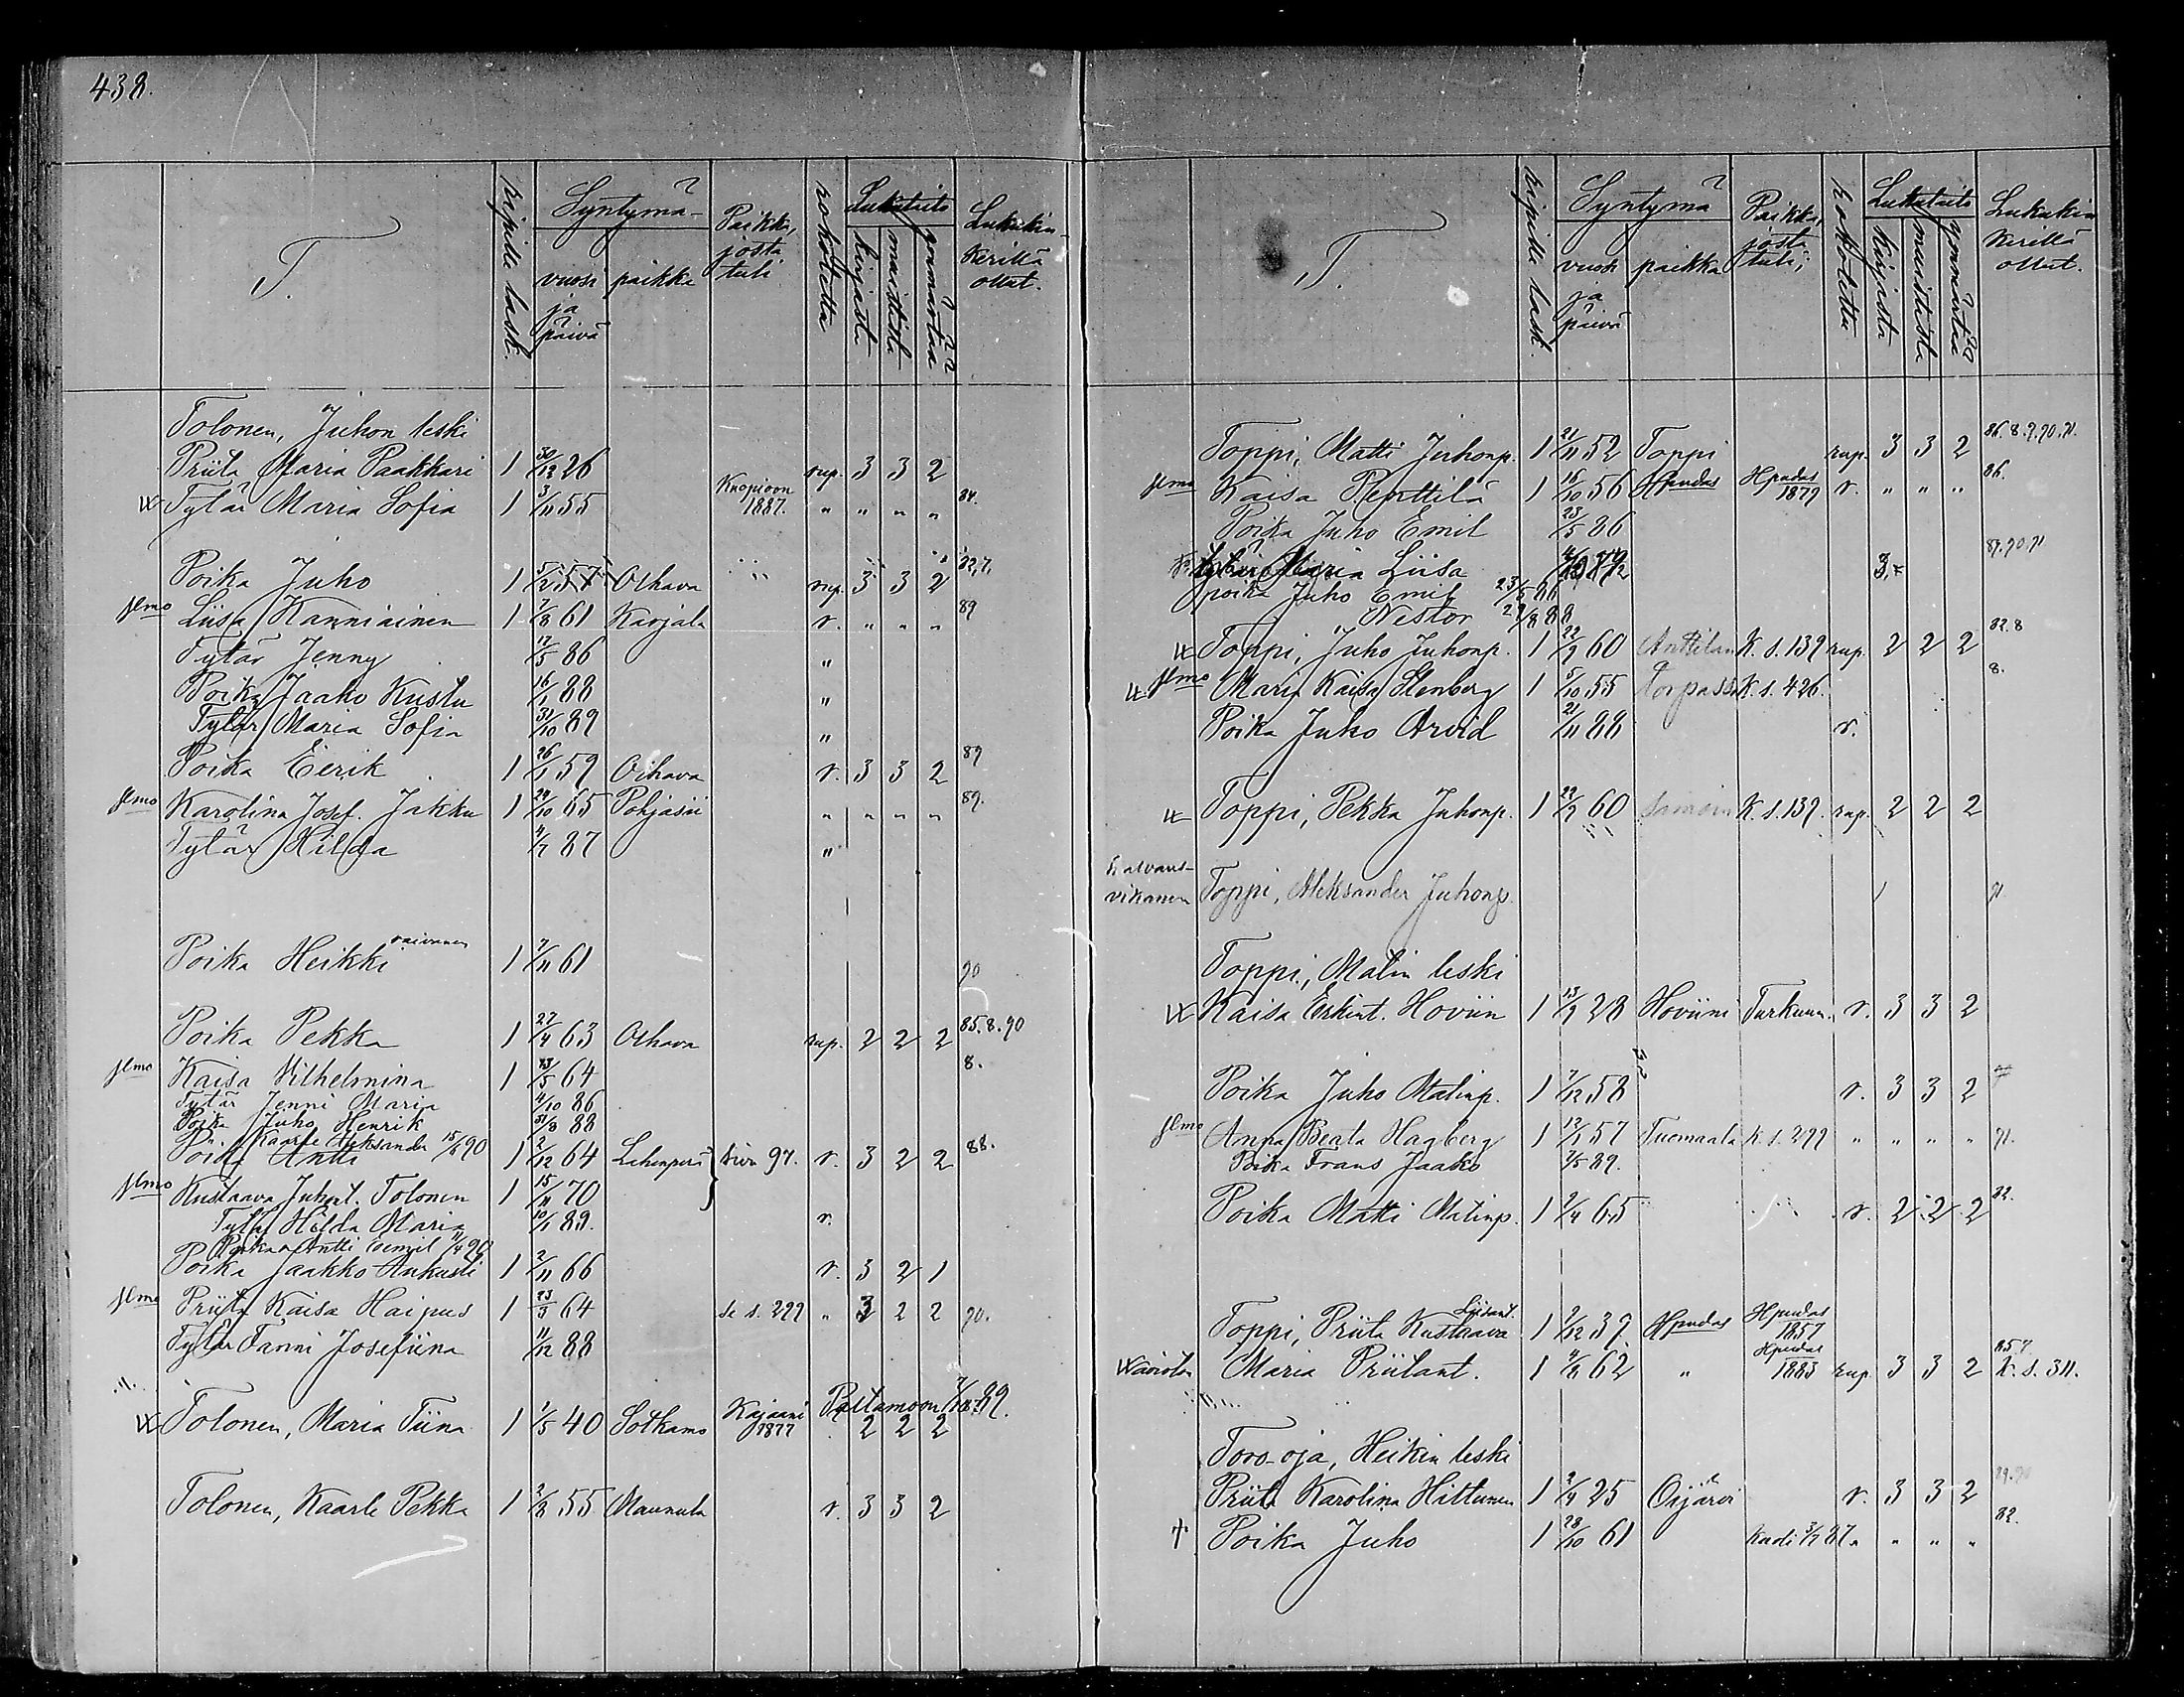 438.
T.
ripille lask.
Syntymä-
vuosi ja päivä
paikka
Paikka, josta tuli
rokotettu
Lukutaito
kirjasta
muistista
ymmärtää
Lukukin-
kerillä
ollut.
Tolonen, Juhon leski
Priita Maria Paakkari 1 30/12 26 rup. 3 3 2
Tytär Maria Sofia 1 3/11 55 Kuopioon 1887. " " " " 84.
Poika Juho 1 5/2 57 Oihava rup. 3 3 2 82,7,
flmo Liisa Kanniainen 1 7/8 61 Karjala r. " " " 89
Tytär Jenny 17/5 86 "
Poika Jaako Kustu 16/1 88 "
Tytär Maria Sofia 31/10 89 "
Poika Eerik 1 26/1 59 Oihava r. 3 3 2 89
flmo Karolina Josef. Jakku 1 24/10 65 Pohjasii " " " " 89.
Tytär Hilda 4/7 87 "
Poika Heikki raivanen 1 7/11 61 90
Poika Pekka 1 27/4 63 Oihava rup. 2 2 2 85.8.90
flmo Kaisa Vilhelmina 1 13/5 64 8.
Tytär Jenni Maria 4/10 86
Poika Juho Henrik 31/8 88
Pa. Kaarle Aleksander 15/6 90
Poika Antti 1 2/12 64 Lehenperä sivu 97. r. 3 2 2 88.
flmo Kustaava Juhont. Tolonen 1 15/11 70
Tytär Hilda Maria 10/1 89. r.
Poika Antti Eemil 11/4 90
Poika Jaakko Aukusti 1 2/11 66 r. 3 2 1
flmo Priita Kaisa Haipus 1 23/3 64 se s. 299 " 3 2 2 90.
Tytär Fanni Josefiina 11/12 88
Paltamoon 7/10 89.
Tolonen, Maria Tiina 1 1/5 40 Sotkamo Kajaani 1877 2 2 2
Tolonen, Kaarle Pekka 1 2/8 55 Maunula r. 3 3 2
T.
ripille lask.
Syntymä
vuosi ja päivä
paikka
Paikka, josta tuli,
rokotettu
Lukutaito
kirjasta
muistista
ymmärtää
Lukukin
kerillä
ollut.
Toppi, Matti Juhonp. 1 21/11 52 Toppi rup. 3 3 2 86.8.9.90.91.
flmo Kaisa Perttilä 1 16/10 56 Hpudas Hpudas 1879 r. " " " 86.
Poika Juho Emil 23/5 86
Maria Liisa 3, 89.90.91
poika Juho Emil 23/5 86
Nestor 29/8 88
Toppi, Juho Juhonp. 1 22/9 60 Anttilan K. s. 139 rup. 2 2 2 82.8
flmo Maria Kaisa Stenberg 1 5/10 55 Torpassa K. s. 426. 8.
Poika Juho Arvid 21/11 88 r.
Toppi, Pekka Juhonp. 1 22/9 60 Simoin K. s. 139. rup. 2 2 2
Toppi, Aleksander Juhonp. 91.
Toppi, Matin leski
Kaisa Erkint. Hoviin 1 13/9 28 Hoviini Turkuun. r. 3 3 2
Poika Juho Matinp. 1 7/12 58 r. 3 3 2
flmo Anna Beata Hagberg 1 12/1 57 Tuomaala k. s. 299 " " " " 91.
Poika Frans Jaako 7/5 89.
Poika Matti Matinp. 1 2/4 65 r. 2 2 2 82.
Toppi, Priita Kustaava Liisant. 1 2/12 39 Hpudas Hpudas 1857
Maria Priitant. 1 9/8 62 " Hpudas 1883 rup. 3 3 2 85.7. K. s. 311.
Toro-oja, Heikin leski
Priita Karolina Hiltunen 1 2/4 25 Oijärvi r. 3 3 2 89.90
Poika Juho 1 28/10 61 kuoli 3/7 87. " " " " 82.